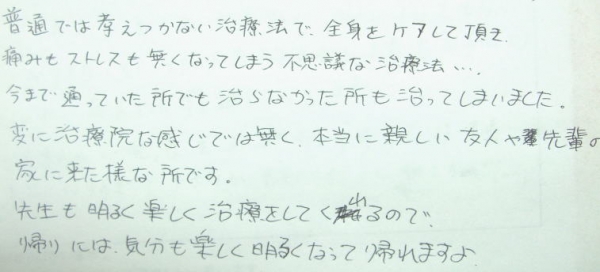 普通では考えつかない治療法で、全身をケアして頂き、
痛みもストレスも無くなってしまう不思議な治療法…。
今まで通っていた所でも治らなかった所も治ってしまいました。
変に治療院な感じでは無く、本当に親しい友人や先輩の
家に来た様な所です。
先生も明るく楽しく治療をしてくれるので、
帰りには、気分も楽しく明るくなって帰れますよ